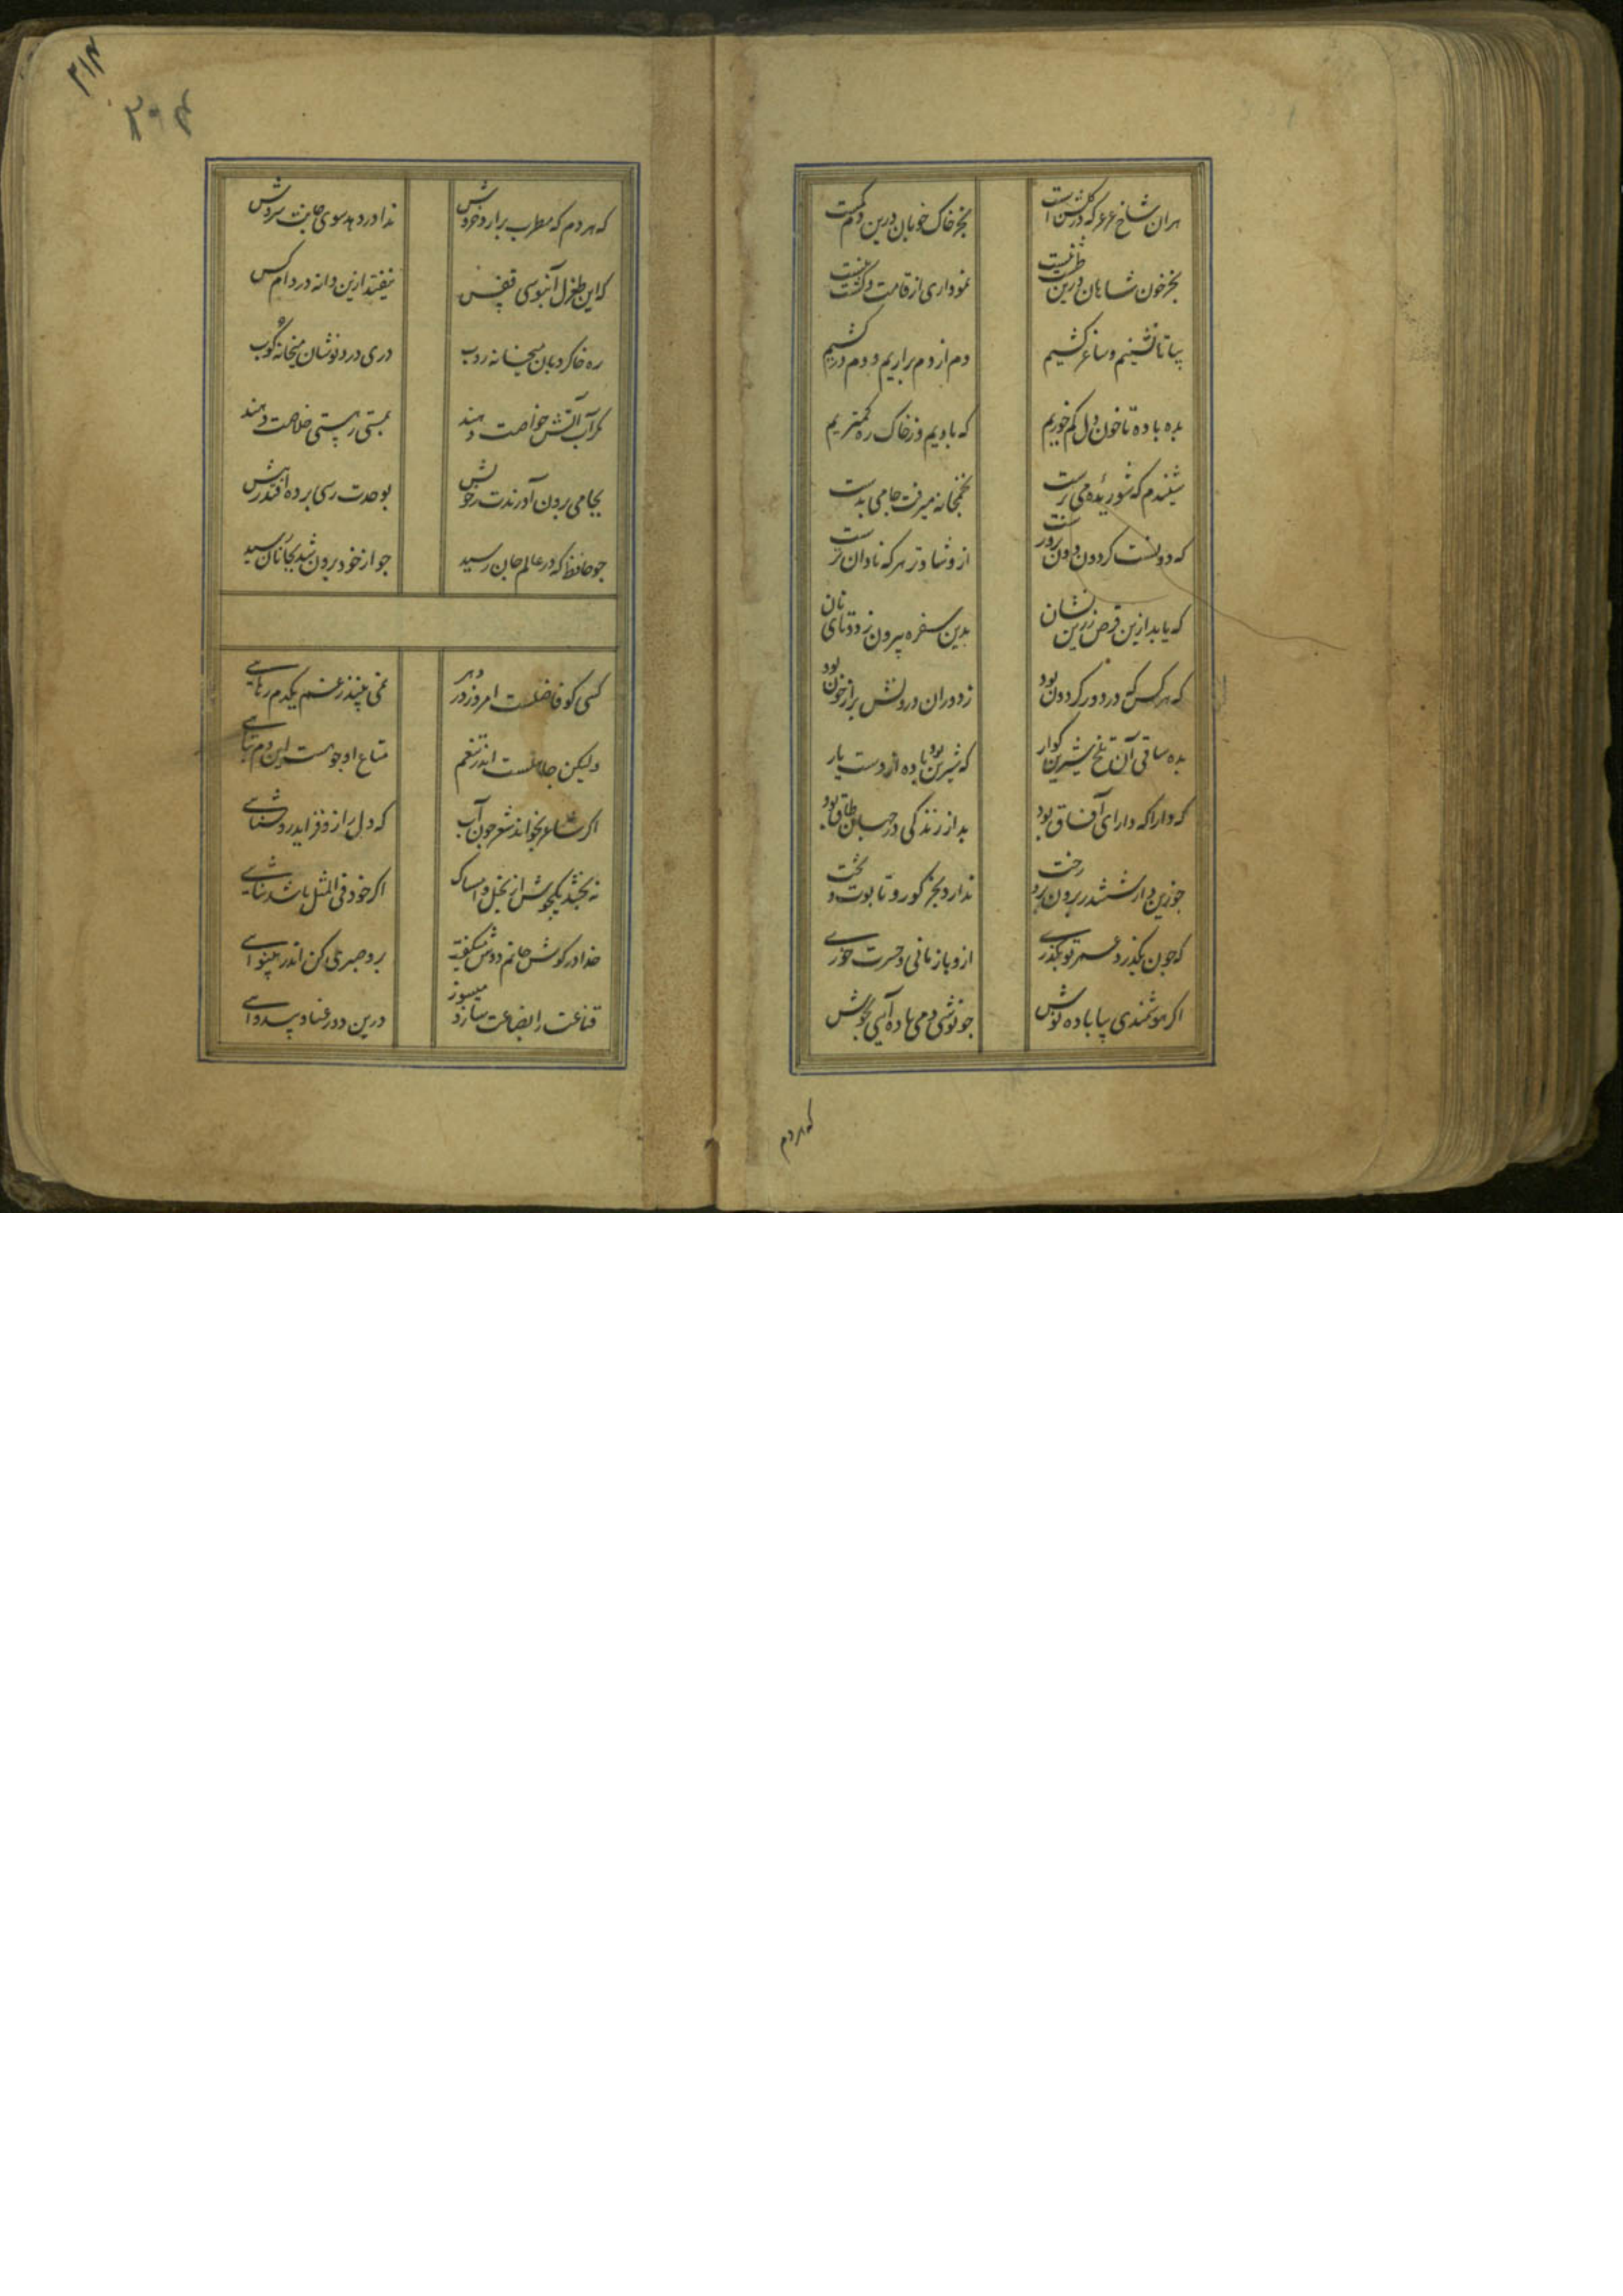 هران شاخ عرعر که در گلشن است
بجز خاک خوبان درین دشت نیست
بجز خون شاهان درین طشت نیست
نموداری از قامت
بیا تا نشینیم و ساغر کشیم
دم از دم براریم و دم در کشیم
بده باده تا خون دل کم خوریم
که بادیم وز خاک ره کمتریم
شنیدم که شوریدهٔ می پرست
بخمخانه میرفت جامی بدست
که دونست کردون دون پرورست
ازو شادتر هر که نادان ترست
که یابد ازین قرص زرین نشان
بدین سفره بیرون ز دوتای نان
که هر کس که در دور کردون بود
ز دوران درونش پر از خون بود
بده ساقی آن تلخ شیرین کوار
که شیرین بود باده از دست یار
که دارا که دارای آفاق بود
بد از زندکی در جهان طاق بود
جو زین دار ششدر برون برد رخت
ندارد بجز کور و تابوت و تخت
که جون بکذرد عمر تو بکذری
ازو باز مانی و حسرت خوری
اکر هوشمندی بیا باده نوش
جو نوشی دمی باده آیی بجوش
که هر دم
۳۱۴
که هر دم که مطرب برارد خروش
ندا در دهد سوی جانت سروش
که این طغرل آبنوسی قفس
نیفتد ازین دانه در دام کس
ره خاکروبان میخانه روب
دری دردنوشان میخانه کوب
مکر آب آتش خواصت دهند
بمستی ز هستی خلاصت دهند
بجامی برون آورندت ز خویش
بوحدت رسی پرده افتد ز پیش
جو حافظ که در عالم جان رسید
جو از خود برون شد بجانان رسید
کسی کو فاضلست امروز در دهر
نمی بیند ز غم یکدم رهایی
ولیکن جاهلست اندر تنعم
متاع او جو هست این دم بهایی
اکر شاعر بخواند شعر جون آب
که دل را زو فزاید روشنایی
نه بخشندش یکجو از بخل و امساک
اکر خود فی المثل باشد سنایی
خدا در کوش جانم دوش میکفت
برو صبری کن اندر بینوایی
قناعت را بضاعت ساز و میسوز
درین درد و عنا و بیدوایی